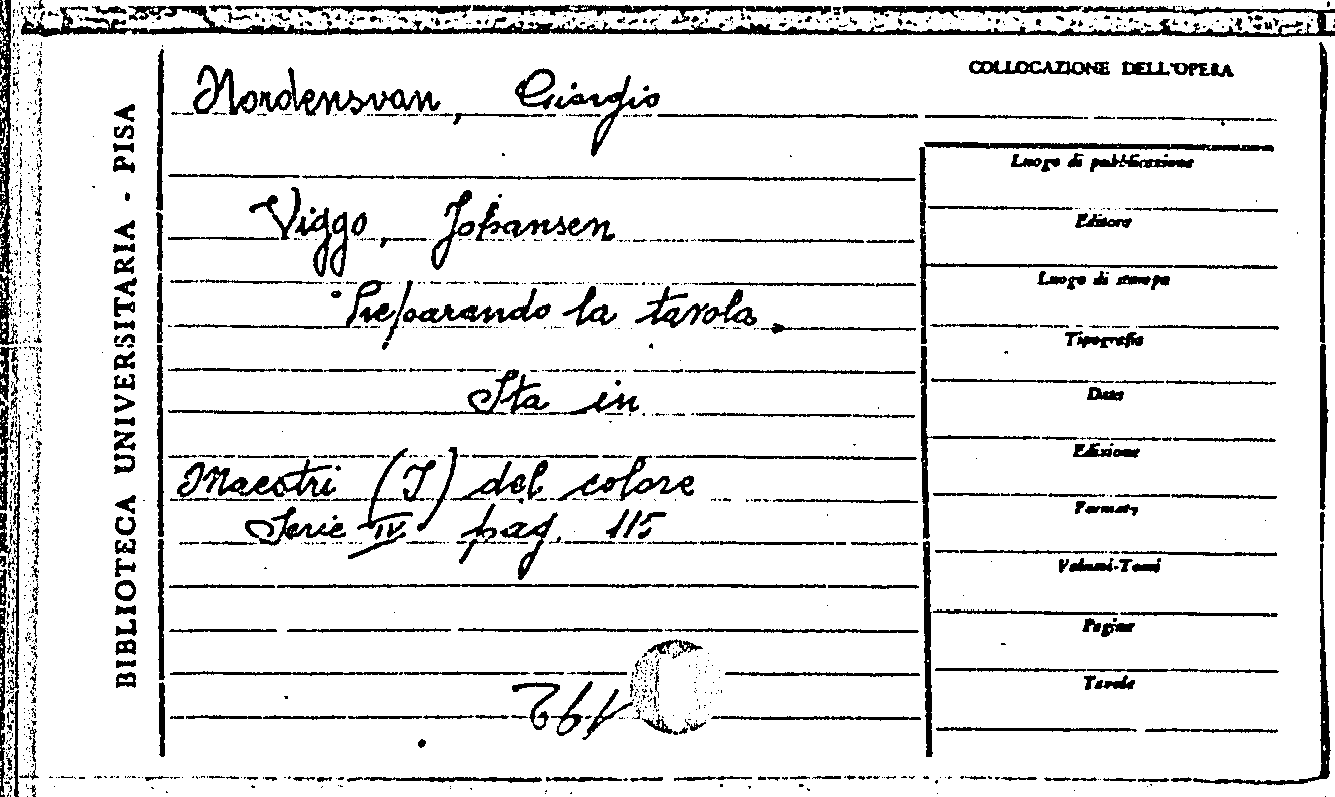 BIBLIOTECA UNIVERSITARIA - PISA
COLLOCAZIONE DELL'OPERA
Nordensvan, Giorgio
Viggo, Johansen
Preparando la tavola.
Sta in
Maestri (I) del colore
Serie IV pag. 115
192
Luogo di pubblicazione
Editore
Luogo di stampa
Tipografia
Data
Edizione
Formato
Volumi-Tomi
Pagine
Tavole